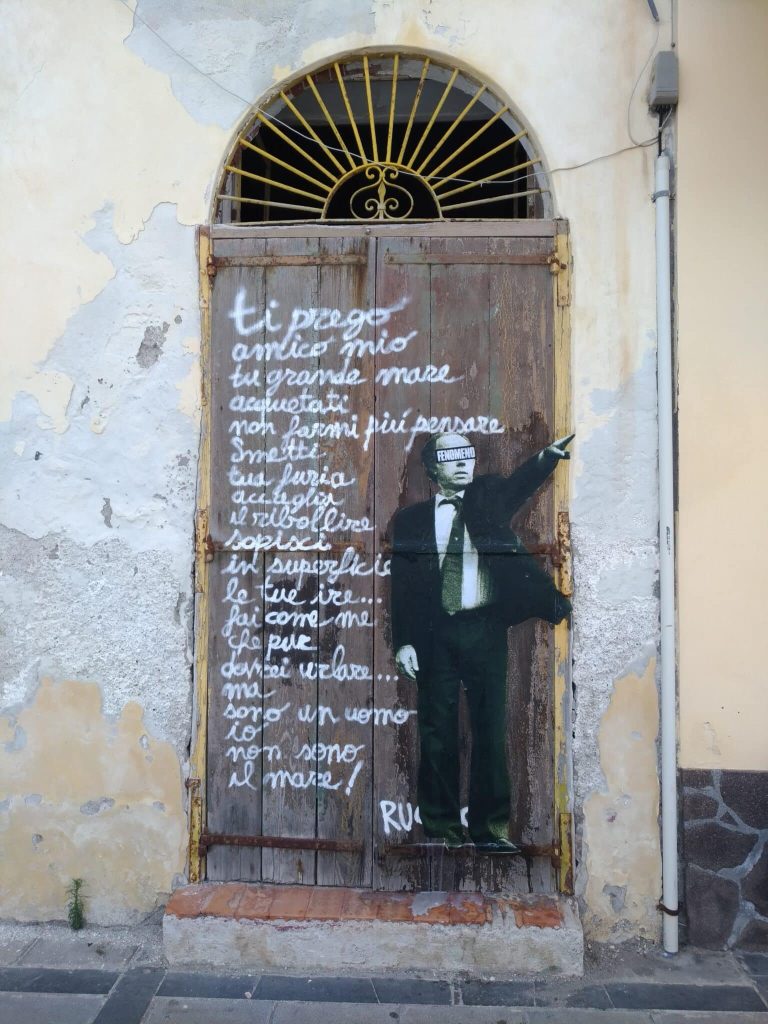 ti prego
amico mio
tu grande mare
acquetati
non farmi più pensare
Smetti
tua furia
accuglia
il ribollire
sopisci
in superficie
le tue ire...
fai come me
che pur
dovrei urlare...
ma
sono un uomo
io
non sono
il mare!
FENOMENO